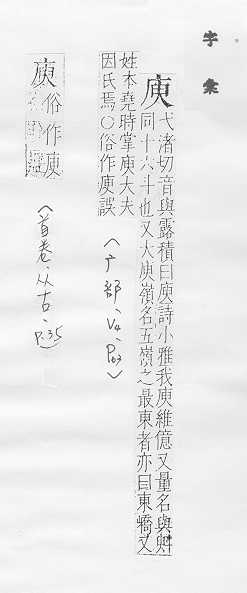 字彙
庾 弋渚切音與露積曰庾詩小雅我庾維億又量名與斞
同十六斗也又大庾嶺名五嶺之最東者亦曰東嶠又
姓本堯時掌庾大夫
因氏焉○俗作庾誤
(广部、V4、P63)
庾 俗作庾
(首卷、从古、P.35)